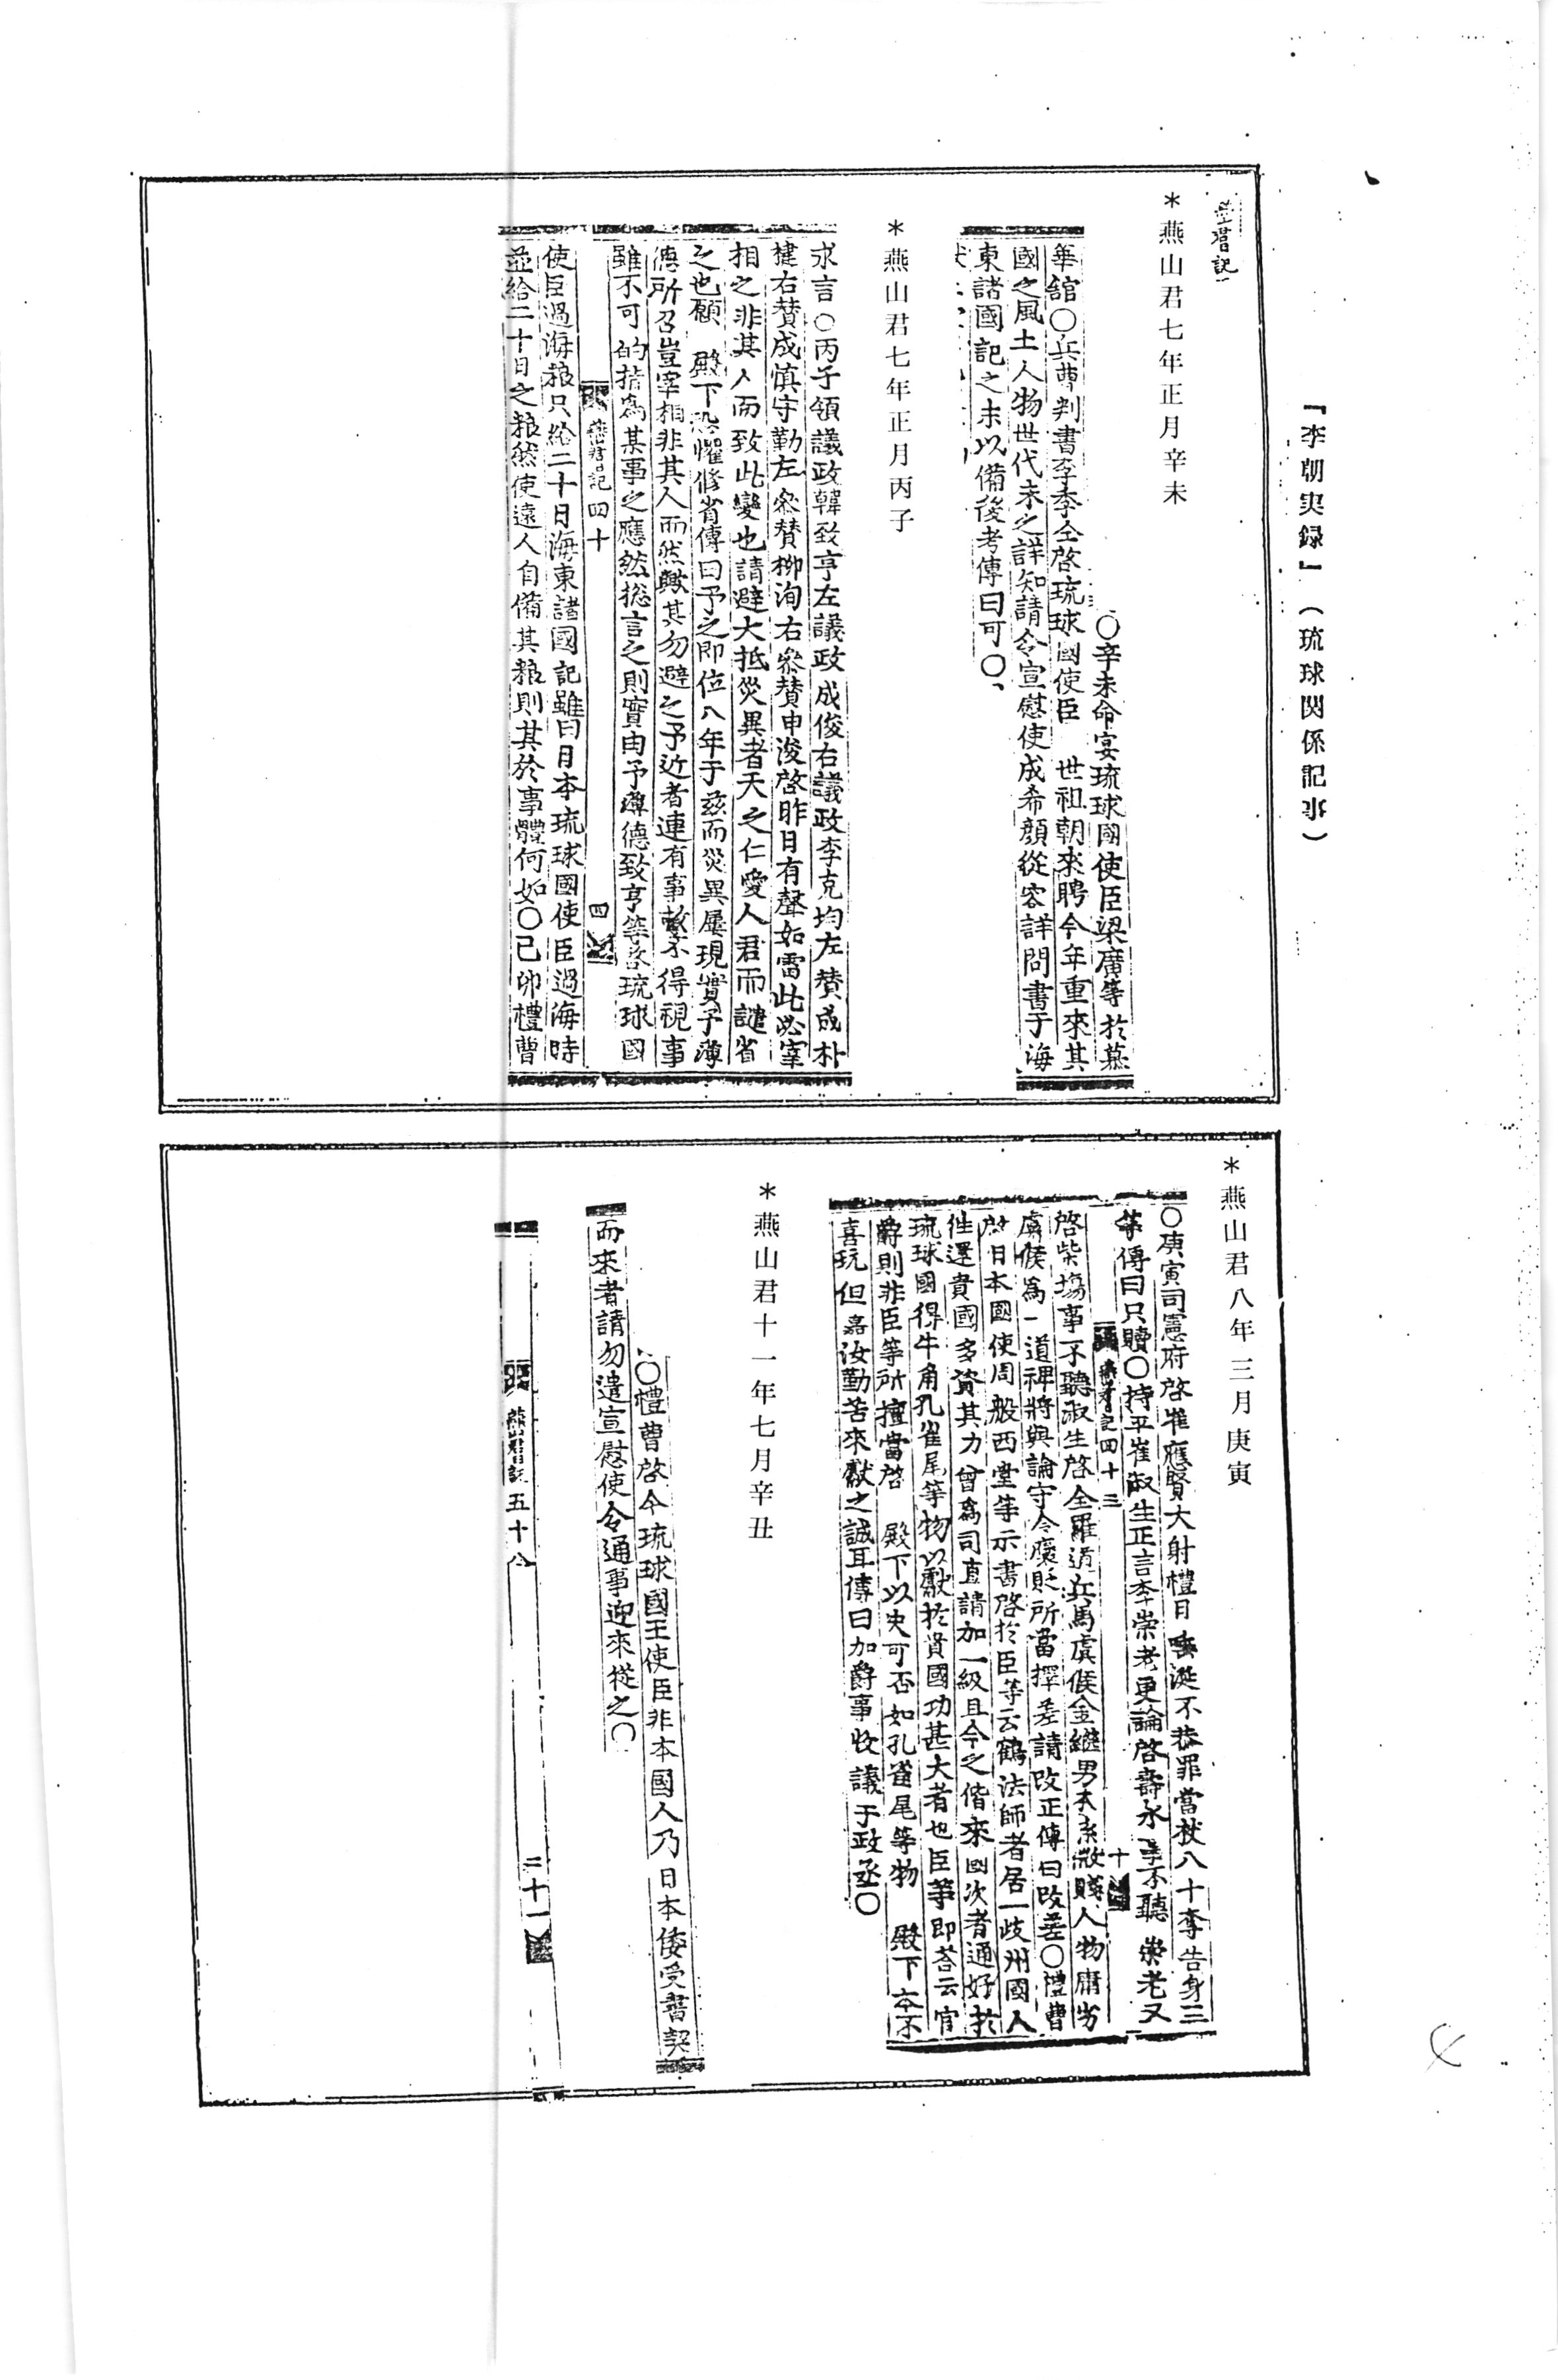 『李朝実録』（琉球関係記事）
燕君記
＊燕山君七年正月辛未
○辛未命宴琉球國使臣梁廣等於慕
華館○兵曹判書李季仝啓琉球國使臣　世祖朝來聘今年重來其
國之風土人物世代未之詳知請令宣慰使成希顔從容詳問書于海
東諸國記之末以備後考傳曰可○
＊燕山君七年正月丙子
求言○丙子領議政韓致亨左議政成俊右議政李克均左賛成朴
楗右賛成愼守勤左參賛柳洵右參賛申浚啓昨日有聲如雷此必宰
相之非其人而致此變也請避大抵災異者天之仁愛人君而譴省
之也願　殿下恐懼修省傳曰予之即位八年于玆而災異屢現實予薄
德所召豈宰相非其人而然歟其勿避之予近者連有事故不得視事
雖不可的指爲某事之應然捴言之則實由予薄德致亨等啓琉球國
燕君記四十　四
使臣過海粮只給二十日海東諸國記雖曰日本琉球國使臣過海時
並給二十日之粮然使遠人自備其粮則其於事體何如○己卯禮曹
＊燕山君八年三月庚寅
○庚寅司憲府啓崔應賢大射禮日唾涎不恭罪當杖八十奪告身三
等傳曰只贖○持平崔淑生正言李崇老更論啓壽永事不聽崇老又
燕君記四十三　十
啓柴場事不聽淑生啓全羅道兵馬虞候金繼男本系微賤人物庸劣
虞候爲一道裨將與論守令褒貶所當擇差請改正傳曰改差○禮曹
啓日本國使周般西堂等示書啓於臣等云鶴法師者居一歧州國人
往還貴國多資其力曾爲司直請加一級且今之偕來國次者通好於
琉球國得牛角孔雀尾等物以獻於貴國功甚大者也臣等即荅云官
爵則非臣等所擅當啓　殿下以史可否如孔雀尾等物　殿下本不
喜玩但嘉汝勤苦來獻之誠耳傳曰加爵事收議于政丞○
＊燕山君十一年七月辛丑
○禮曹啓今琉球國王使臣非本國人乃日本倭受書契
而來者請勿遣宣慰使令通事迎來從之○
燕山君記五十八　二十一